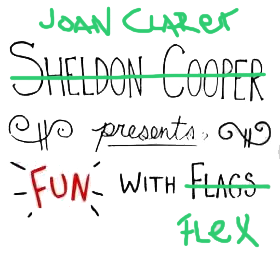 JOAN CLARET
SHELDON COOPER
presents
FUN WITH FLAGS
FLEX